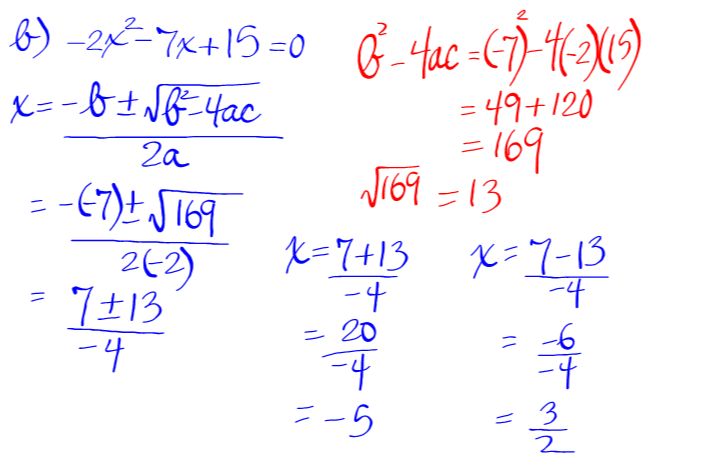 b) -2x²-7x+15=0
x = (-b±√(b²-4ac))/(2a)
= (-(-7)±√169)/(2(-2))
= (7±13)/(-4)
b²-4ac=(-7)²-4(-2)(15)
= 49+120
= 169
√169 = 13
x = (7+13)/(-4)
= 20/(-4)
= -5
x = (7-13)/(-4)
= -6/-4
= 3/2